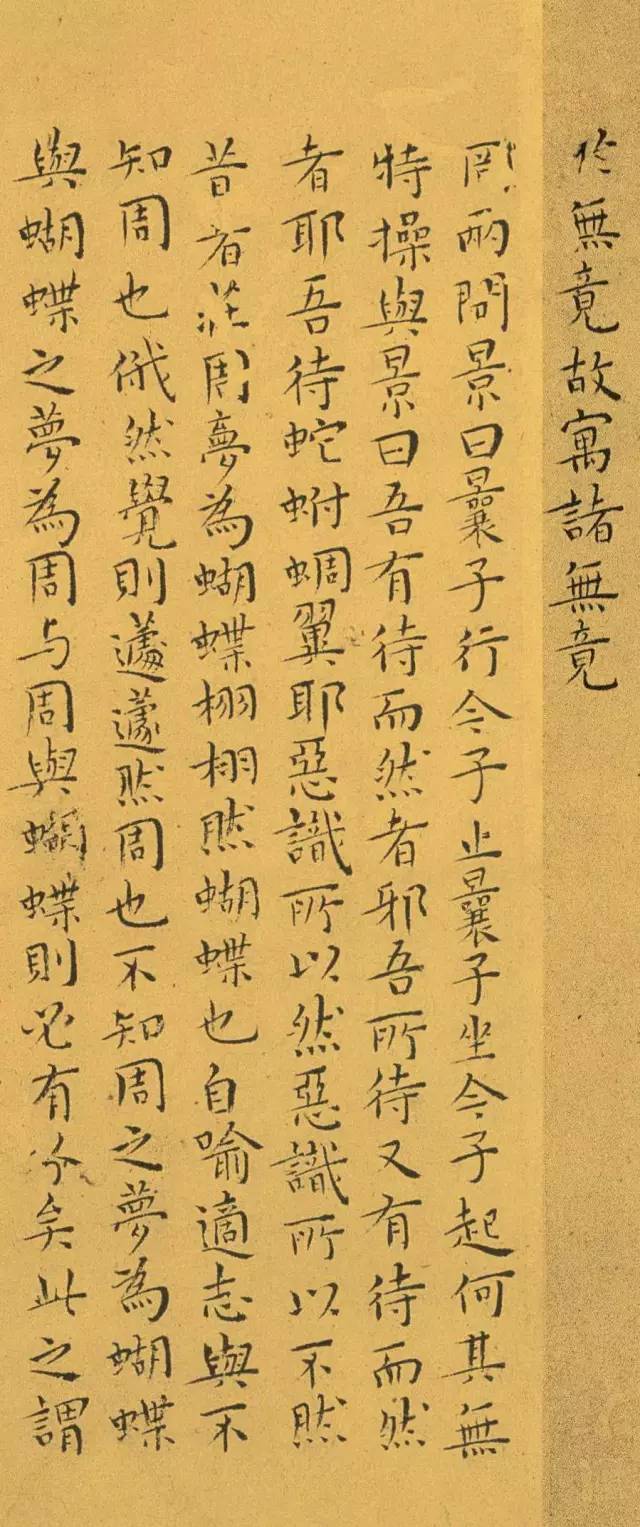 於無竟故寓諸無竟
罔兩問景曰曩子行今子止曩子坐今子起何其無
特操與景曰吾有待而然者邪吾所待又有待而然
者耶吾待蛇蚹蜩翼耶惡識所以然惡識所以不然
昔者莊周夢為蝴蝶栩栩然蝴蝶也自喻適志與不
知周也俄然覺則蘧蘧然周也不知周之夢為蝴蝶
與蝴蝶之夢為周与周與蝴蝶則必有分矣此之謂